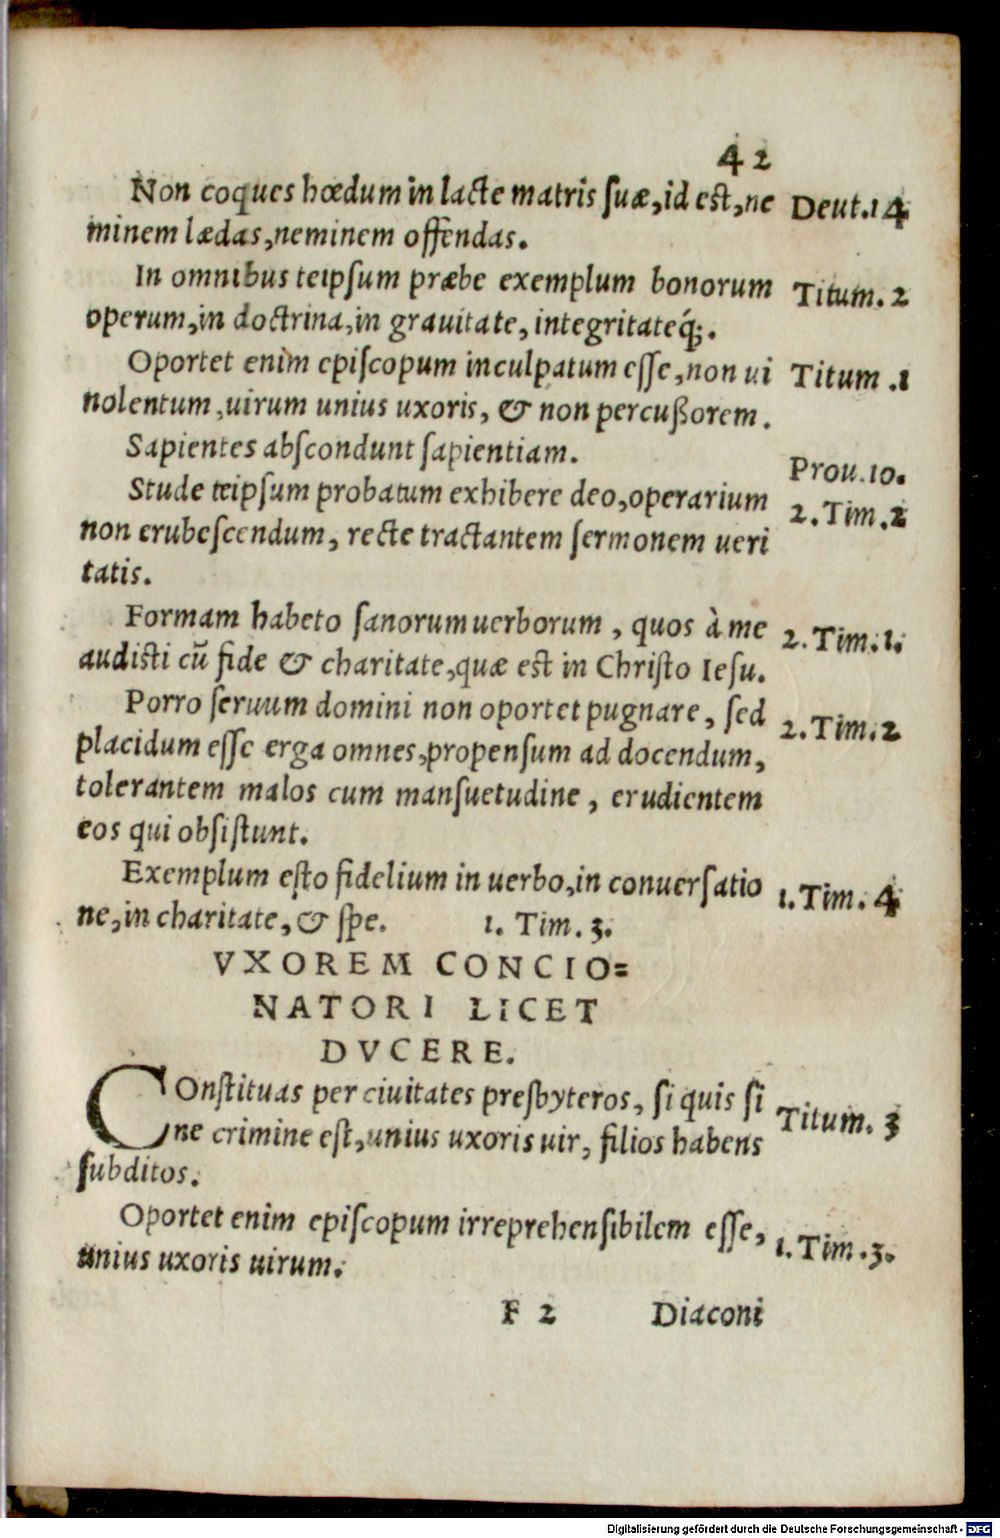 42
Non coques hœdum in lacte matris suæ, id est, ne Deut. 14
minem lædas, neminem offendas.
In omnibus teipsum præbe exemplum bonorum Titum. 2
operum, in doctrina, in grauitate, integritateq́;.
Oportet enim episcopum inculpatum esse, non ui Titum .1
nolentum, uirum unius uxoris, & non percußorem.
Sapientes abscondunt sapientiam. Prou. 10.
Stude teipsum probatum exhibere deo, operarium 2. Tim. 2
non erubescendum, recte tractantem sermonem ueri
tatis.
Formam habeto sanorum uerborum, quos à me 2. Tim. 1.
audisti cū fide & charitate, quæ est in Christo Iesu.
Porro seruum domini non oportet pugnare, sed 2. Tim. 2
placidum esse erga omnes, propensum ad docendum,
tolerantem malos cum mansuetudine, erudientem
eos qui obsistunt.
Exemplum esto fidelium in uerbo, in conuersatio 1. Tim. 4
ne, in charitate, & spe. 1. Tim. 3.
VXOREM CONCIO=
NATORI LICET
DVCERE.
COnstituas per ciuitates presbyteros, si quis si Titum. 3
ne crimine est, unius uxoris uir, filios habens
subditos.
Oportet enim episcopum irreprehensibilem esse, 1. Tim. 3.
unius uxoris uirum.
F 2 Diaconi
Digitalisierung gefördert durch die Deutsche Forschungsgemeinschaft - DFG